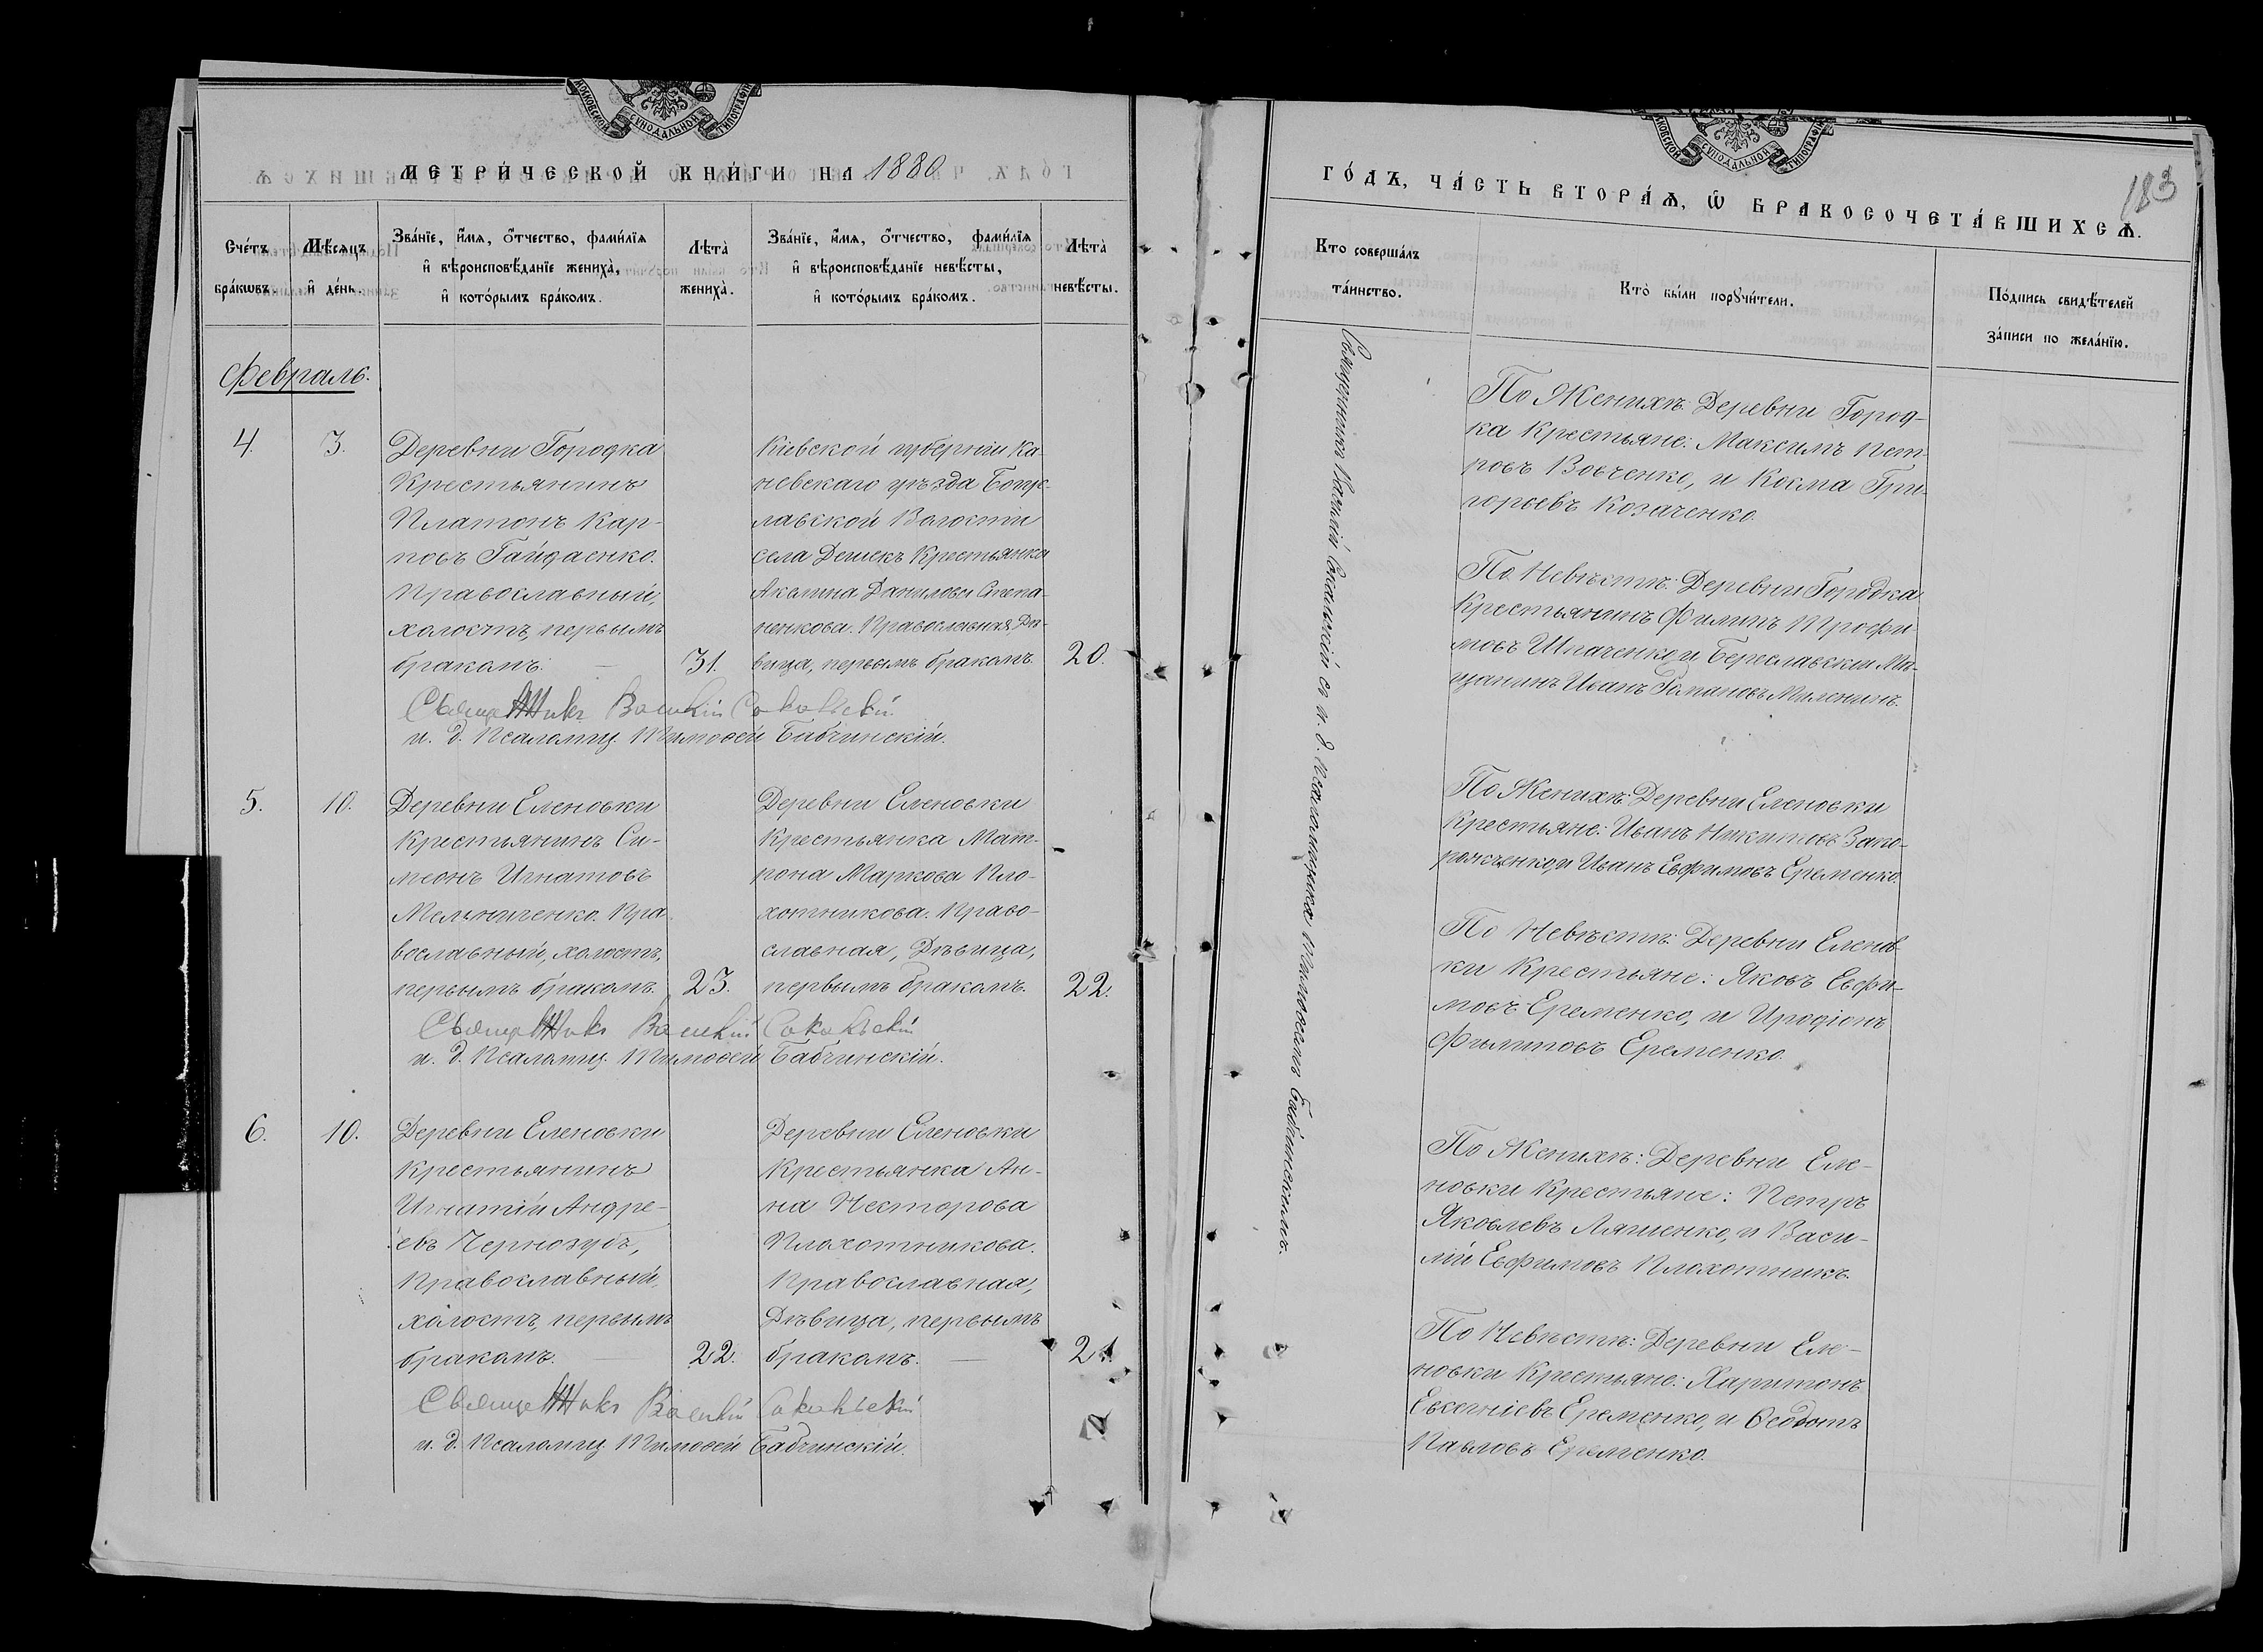 МОСКОВСКОЙ СУНОДАЛЬНОЙ ТИПОГРАФІИ
МЕТРИ́ЧЕСКОЙ КНИ́ГИ НА 1880
Счётъ бра́кѡвъ.
Мѣ́сяцъ и҆ де́нь.
Зва́нїе, и҆́мя, ѻ҆́тчество, фами́лїя и҆ вѣроисповѣ́данїе жениха̀, и҆ кото́рымъ бра́комъ.
Лѣта̀ жениха̀.
Зва́нїе, и҆́мя, ѻ҆́тчество, фами́лїя и҆ вѣроисповѣ́данїе невѣ́сты, и҆ кото́рымъ бра́комъ.
Лѣта̀ невѣ́сты.
Февраль.
4.
3.
Деревни Городка
Крестьянинъ
Платонъ Кар-
повъ Гайдаенко.
Православный,
холостъ, первымъ
бракомъ. —
31.
Кіевской губерніи Ка-
невскаго уѣзда Богу-
лавской Волости
села Дешекъ Крестьянка
Акелина Данилова Степа-
ненкова. Православная, Дѣ-
вица, первымъ бракомъ.
20.
Священникъ Василій Сокальскій
и. д. Псаломщ. Тимоѳей Бабчинскій.
5.
10.
Деревни Еленовки
Крестьянинъ Си-
меонъ Игнатовъ
Мельниченко. Пра
вославный, холостъ,
первымъ бракомъ.
23.
Деревни Еленовки
Крестьянка Мат-
рона Маркова Пло-
хотникова. Право-
славная, Дѣвица,
первымъ бракомъ.
22.
Священникъ Василій Сокальскій
и. д. Псаломщ. Тимоѳей Бабчинскій.
6.
10.
Деревни Еленовки
Крестьянинъ
Игнатій Андре-
евъ Чернозубъ,
Православный,
холостъ, первымъ
бракомъ. —
22.
Деревни Еленовки
Крестьянка Ан-
на Несторова
Плохотникова.
Православная,
Дѣвица, первымъ
бракомъ. —
21.
Священникъ Василій Сокальскій
и. д. Псаломщ. Тимоѳей Бабчинскій.
МОСКОВСКОЙ СУНОДАЛЬНОЙ ТИПОГРАФІИ
ГО́ДЪ, ЧА́СТЬ ВТОРА́Ѧ, Ѽ БРАКОСОЧЕТА́ВШИХСѦ.
183
Кто соверша́лъ та́инство.
Кто̀ бы́ли порꙋчи́тели.
По́дпись свидѣ́телей за́писи по жела́нїю.
Священникъ Василій Сокальскій съ и. д. Псаломщика Тимоѳеемъ Бабчинскимъ.
По Женихѣ: Деревни Город-
ка Крестьяне: Максимъ Пет-
ровъ Вовченко, и Косма Гри-
горьевъ Козаченко.
По Невѣстѣ: Деревни Городка
Крестьянинъ Филипъ Трофи
мовъ Шпаченко и Береславскій Мѣ-
щанинъ Иванъ Романовъ Миленинъ.
По Женихѣ: Деревни Еленовки
Крестьяне: Иванъ Никитовъ Запо-
рожченко, и Иванъ Евфимовъ Еременко.
По Невѣстѣ: Деревни Еленов-
ки Крестьяне: Яковъ Евфи-
мовъ Еременко, и Иродіонъ
Филиповъ Еременко.
По Женихѣ: Деревни Еле-
новки Крестьяне: Петръ
Яковлевъ Ляшенко, и Васи-
лій Евфимовъ Плохотникъ.
По Невѣстѣ: Деревни Еле-
новки Крестьяне: Харитонъ
Евгеніевъ Еременко, и Ѳеодотъ
Павловъ Еременко.